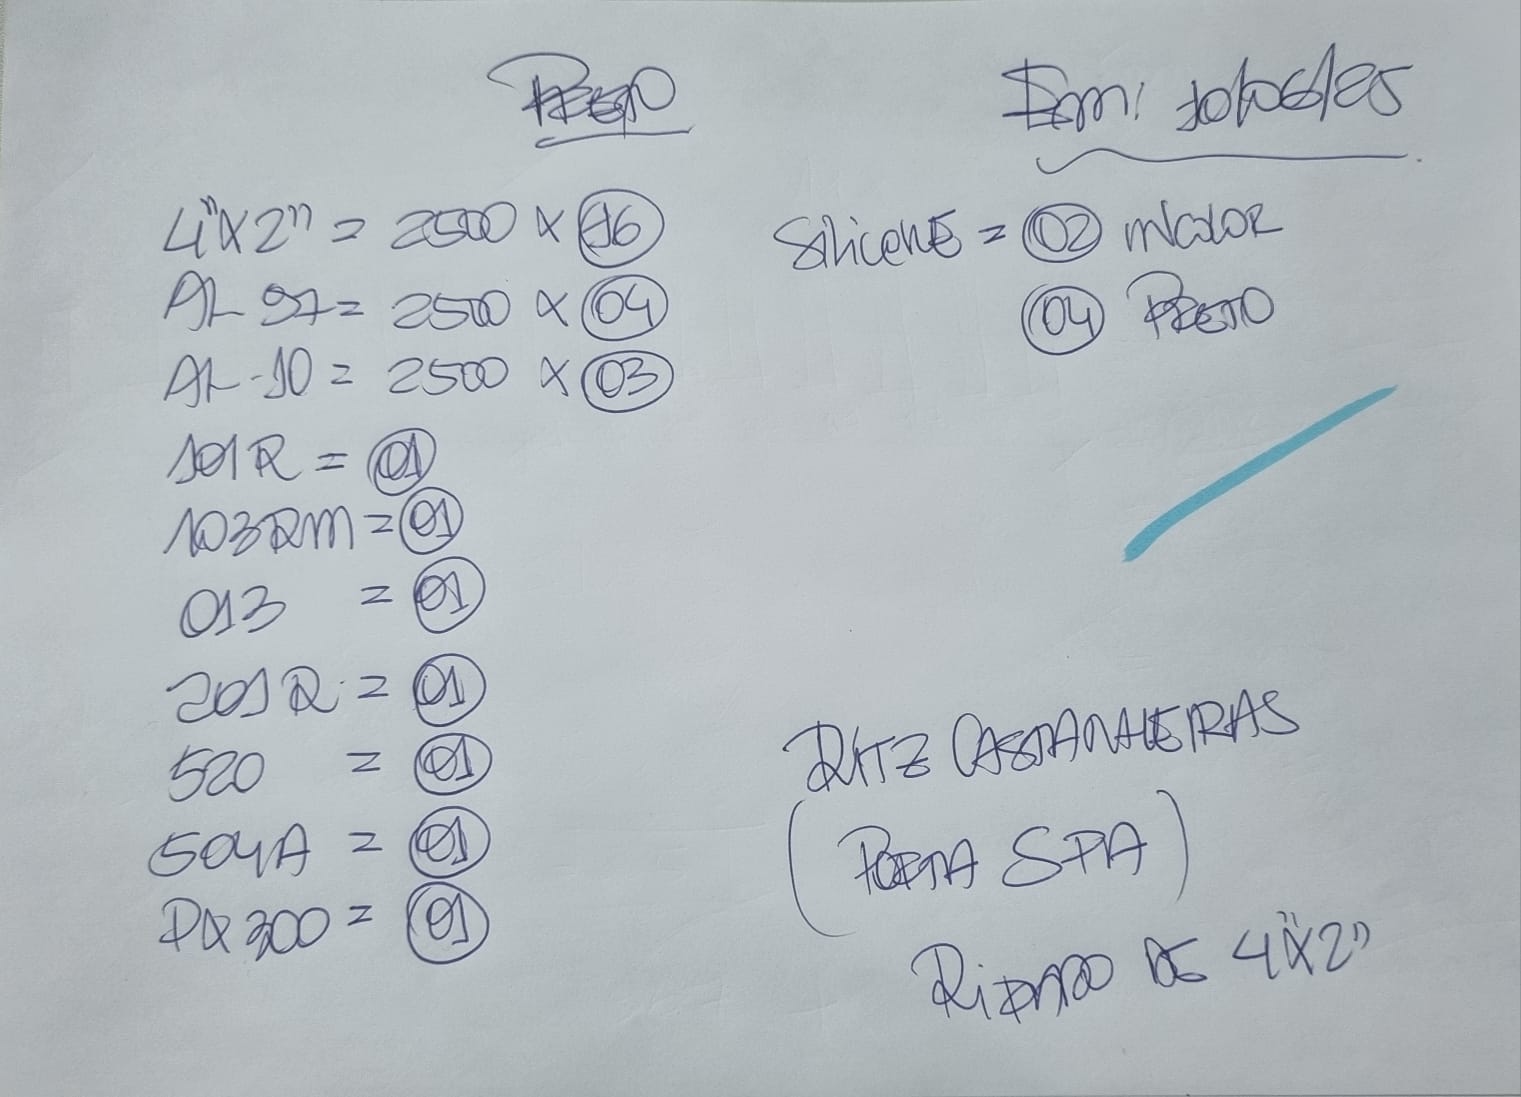 PRETO
4"X2" = 2500 X 16
AL 97 = 2500 X 04
AL-10 = 2500 X 03
101R = 01
103RM = 01
013 = 01
201R = 01
520 = 01
504A = 01
PX 300 = 01
SiliconE = 02 incoloR
04 PRETO
RITZ CASTANHEIRAS
(PORTA SPA)
RiPADO DE 4"X2"